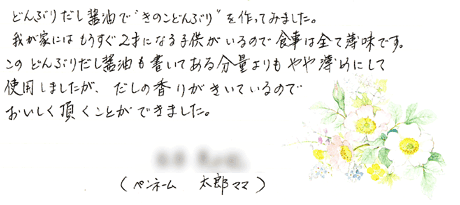 どんぶりだし醤油で"きのこどんぶり"を作ってみました。
我が家にはもうすぐ2才になる子供がいるので食事は全て薄味です。
このどんぶりだし醤油も書いてある分量よりもやや薄めにして
使用しましたが、だしの香りがきいているので
おいしく頂くことができました。
(ペンネーム 太郎ママ)